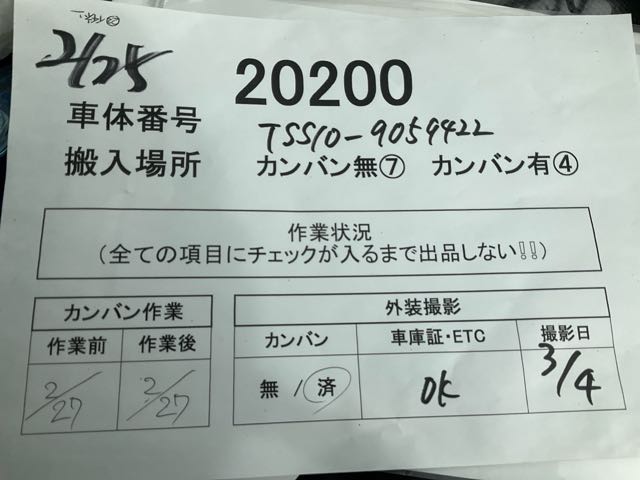 2/25
20200
車体番号 TSS10-9059422
搬入場所 カンバン無⑦ カンバン有④
作業状況
(全ての項目にチェックが入るまで出品しない!!)
カンバン作業
作業前 作業後
2/27 2/27
外装撮影
カンバン 車庫証・ETC 撮影日
無 / 済 OK 3/4